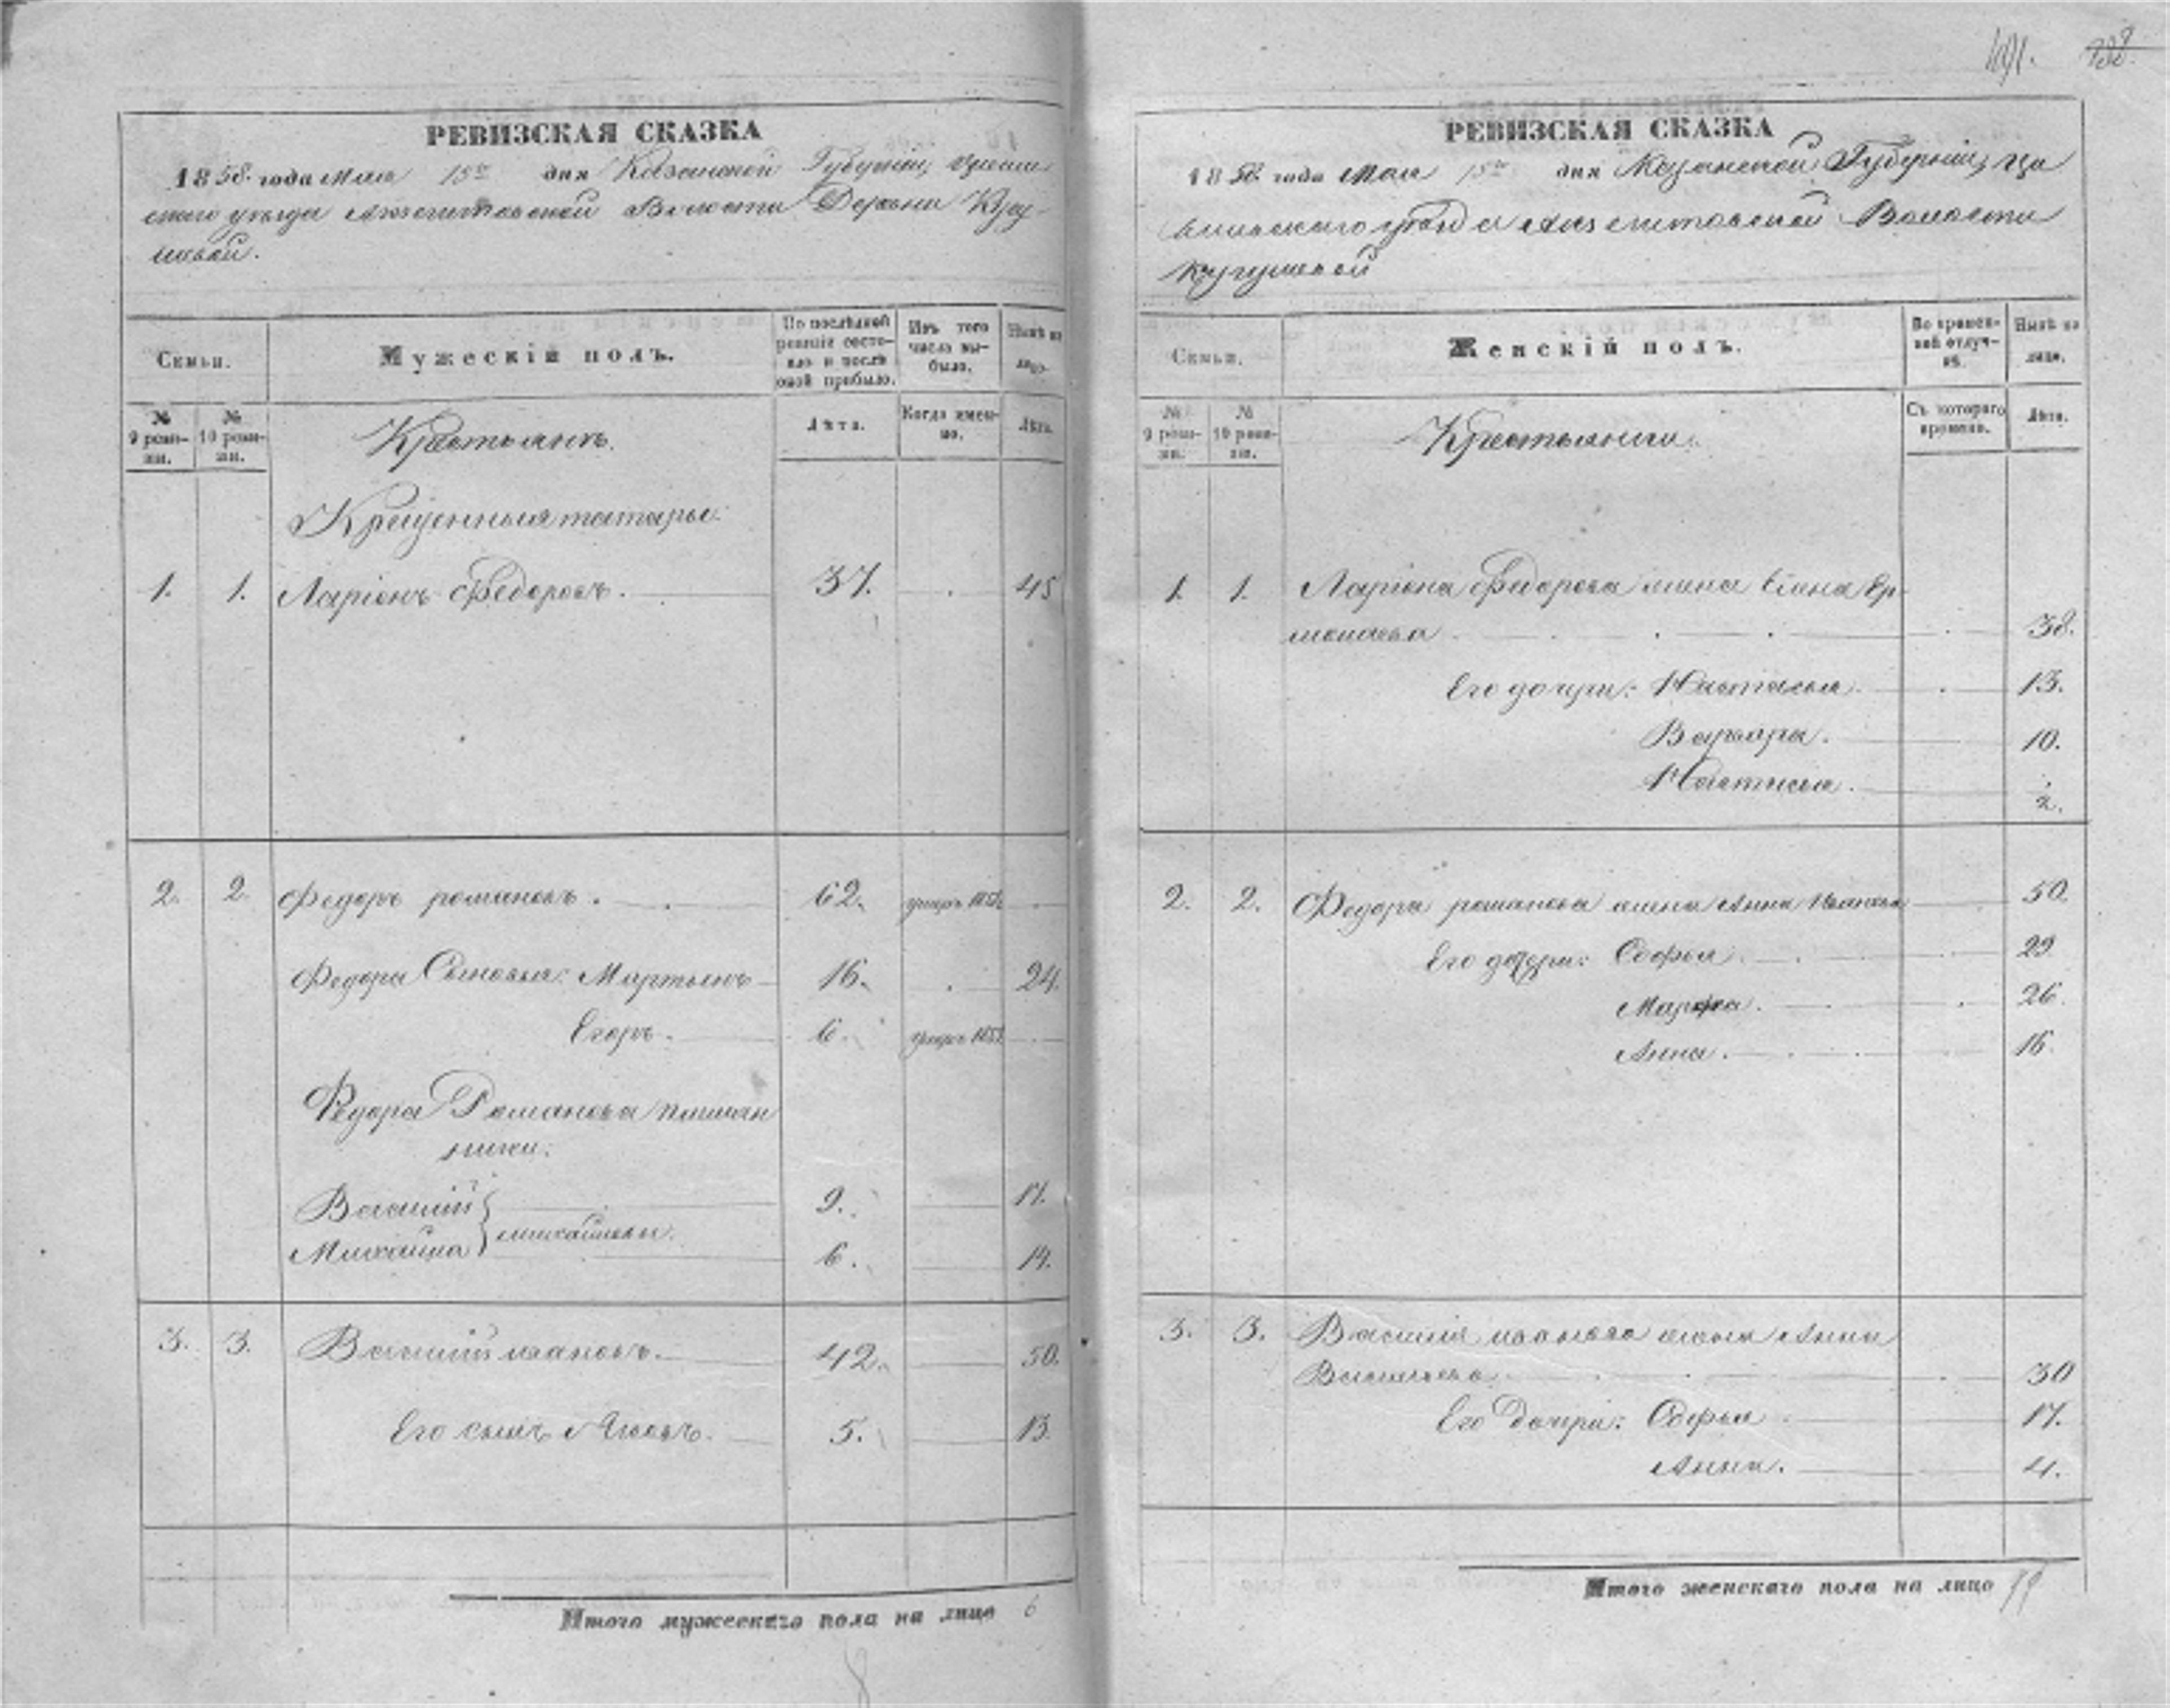 191. 738.
РЕВИЗСКАЯ СКАЗКА
1858. года Мая 15го дня Казанской Губерніи,
скаго уѣзда Волости Деревни
РЕВИЗСКАЯ СКАЗКА
1858. года Мая 15го дня Казанской Губерніи, Ца
уѣзда Волости
Кугушевой
Семьи.
Мужескій полъ.
По послѣдней ревизіи состояло и послѣ оной прибыло.
Изъ того числа выбыло.
Нынѣ на лицо.
№ 9 ревизіи.
№ 10 ревизіи.
Крестьянъ.
Лѣта.
Когда именно.
Лѣта.
Крещенныя татары.
1. 1. Ларіонъ Федоровъ. 37. 45
2. 2. Федоръ романовъ. 62.
Федора Сыновья: Мартынъ 16. 24.
Егоръ. 6.
Федора Романова племян
ники:
Василий 9. 17.
михайловы.
Михайла 6. 14.
3. 3. Василий ивановъ. 42. 50.
Его сынъ Яковъ. 5. 13.
Итого мужескаго пола на лицо 6
8
Семьи.
Женскій полъ.
Во временной отлучкѣ.
Нынѣ на лицо.
№ 9 ревизіи.
№ 10 ревизіи.
Крестьянки.
Съ котораго времени.
Лѣта.
1. 1. Ларіона Федорова жена Елена Ер
молаева 38.
Его дочери: Настасья. 13.
Варвара. 10.
Настасья. 2.
2. 2. Федора романова жена Анна Иванова 50.
Его дочери: Софья. 29
Марфа. 26.
Анна. 16.
3. 3. Василия иванова жена Анна
Васильева. 30
Его дочери: Софья 17.
Анна. 4.
Итого женскаго пола на лицо 11